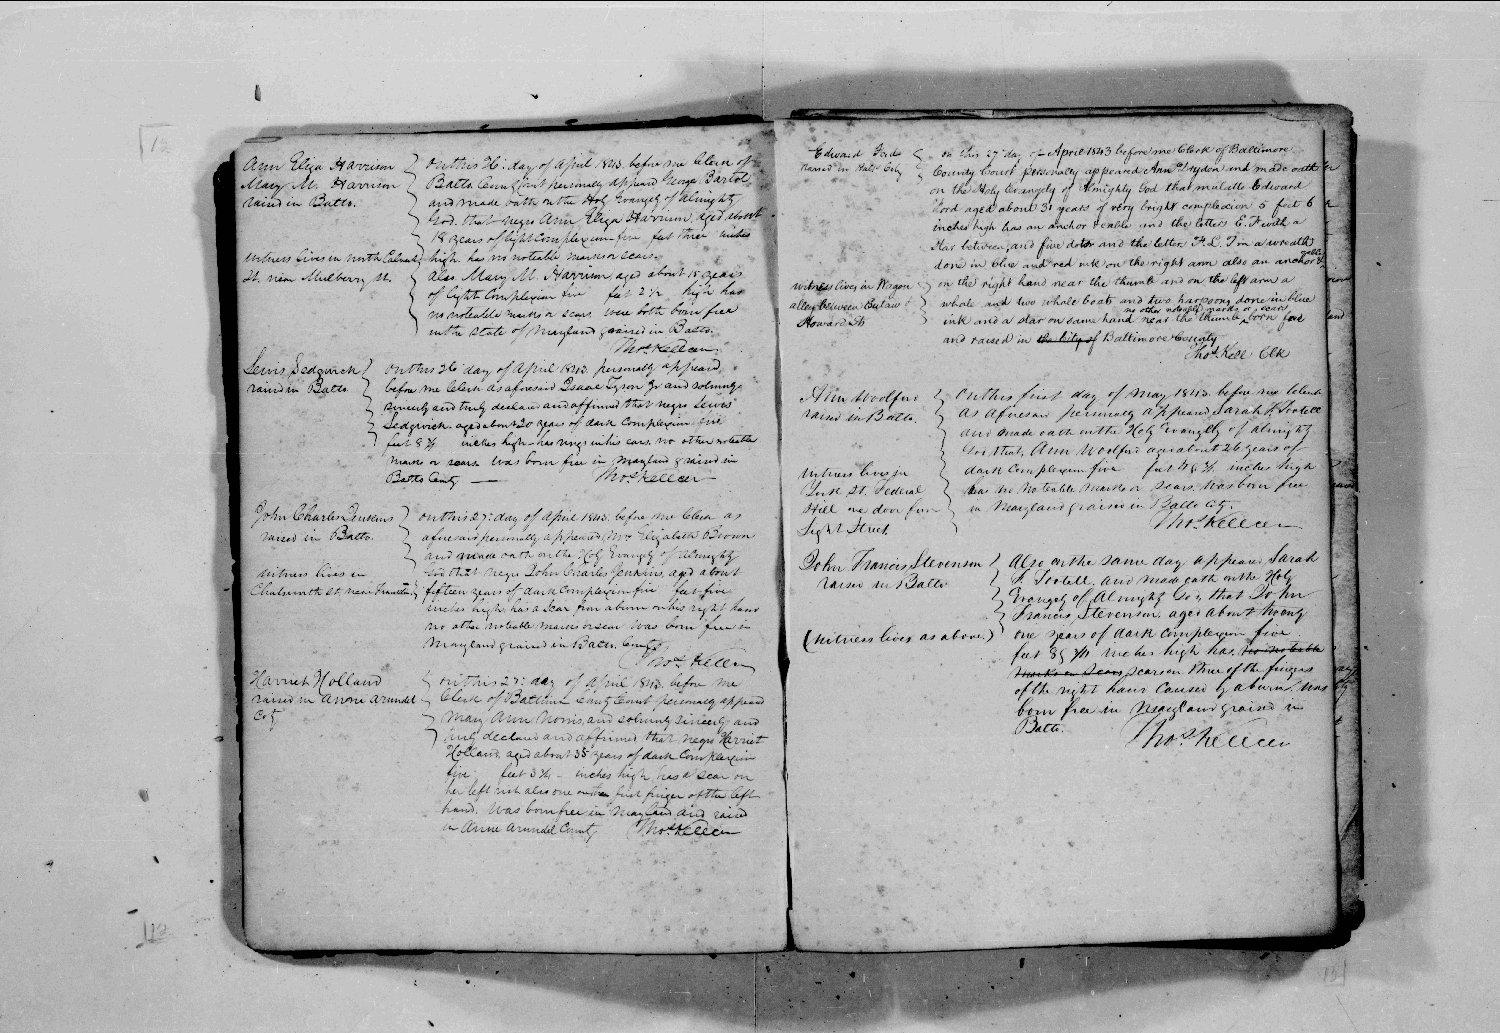 Ann Eliza Harrison
Mary M. Harrison
raised in Balto.
witness lives in north Calvert
St. near Mulberry St.
on this 26: day of April 1843. before me Clerk of
Balto. County Court personally appeared George Bartol
and made oath on the Holy Evangely of Almighty
God. that negro Ann Eliza Harrison, aged about
18 years of light Complexion five feet three inches
high. has no noteable marks or scars.
Also Mary M. Harrison aged about 15 years
of light Complexion five feet 2 1/2 high has
no noteable marks or scars were both born free
in the State of Maryland & raised in Balto.
Thos. Kell Clk
Lewis Sedgwick
raised in Balto
on this 26 day of April 1843 personaly appeared
before me Clerk as aforesaid Isaac Tyson Jr and solemnly
sincerely and truly declared and affirmed that negro Lewis
Sedgwick. aged about 20 years of dark Complexion five
feet 8 3/4 inches high - has rings in his ears. no other noteable
marks or scars was born free in Maryland & raised in
Balto County
Thos. Kell clk
John Charles Jenkins
raised in Balto.
Witness lives in
Chatsworth St. near Franklin
on this 27: day of April 1843. before me Clerk as
aforesaid personaly appeared Mrs Elizabeth Brown
and made oath on the Holy Evangely of Almighty
God that negro John Charles Jenkins, aged about
fifteen years of dark Complexion five feet five
inches high, has a scar from a burn on his right hand
no other noteable marks or scar was born free in
Maryland & raised in Balto. County
Thos. Kell clk
Harriet Holland
raised in Anne Arundel
Coty
on this 27: day of April 1843. before me
Clerk of Baltimore County Court personaly appeared
Mary Ann Norris, and solemnly sincerely and
truly declared and affirmed that negro Harriet
Holland, aged about 35 years of dark Complexion
five feet 3 3/4 - inches high, has a scar on
her left rist also one on the first finger of the left
hand. was born free in Maryland and raised
in Anne Arundel County
Thos. Kell clk
Edward Ford
raised in Balt. City
witness lives in Wagon
alley between Eutaw &
Howard St
on this 27 day of April 1843 before me Clerk of Baltimore
County Court personaly appeared Ann Dryden and made oath
on the Holy Evangely of Almighty God that mulatto Edward
Ford aged about 31 years of very bright complexion 5 feet 6
inches high has an anchor & cable and the letters E. F with a
star between, and five dots and the letter F. L. F in a wreath
done in blue and red ink on the right arm also an anchor &
on the right hand near the thumb and on the left arm a
whale and two whale boats and two harpoons done in blue
no other noteable marks or scars
ink and a star on same hand near the thumb born free
and raised in the City of Baltimore County
Thos. Kell Clk
Ann Woolford
raised in Balto.
witness lives in
York St. Federal
Hill one door from
Light Street
On this first day of May 1843. before me Clerk
as aforesaid personaly appeared Sarah F. Tootell
and made oath on the Holy Evangely of Almighty
God that, Ann Woolford aged about 26 years of
dark Complexion five feet inches high
has no noteable marks or scars. was born free
in Maryland & raised in Balto City.
Thos. Kell clk
John Francis Stevenson
raised in Balto
(witness lives as above.)
Also on the same day appeared Sarah
F. Tootell and made oath on the Holy
Evangely of Almighty God, that John
Francis Stevenson aged about twenty
one years of dark complexion five
feet 8 3/4 inches high has no noteable
marks or scars scars on three of the fingers
of the right hand caused by a burn. was
born free in Maryland & raised in
Balto.
Thos. Kell clk